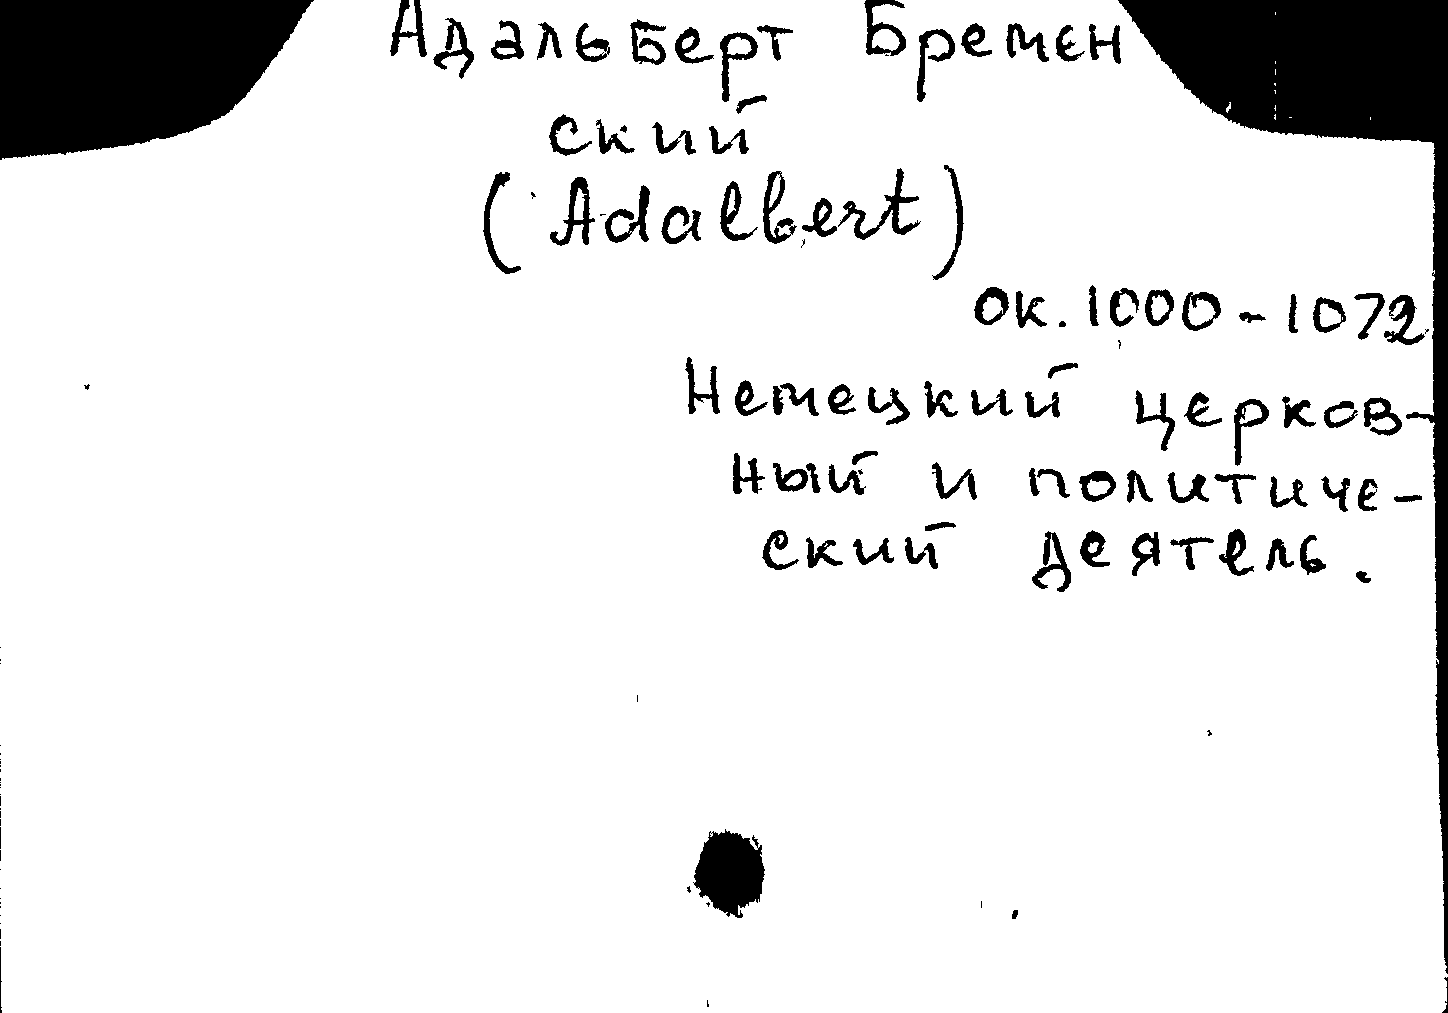 Адальберт Бремен
ский
(Adalbert)
ок. 1000-1072
Немецкий церков-
ный и политиче-
ский деятель.